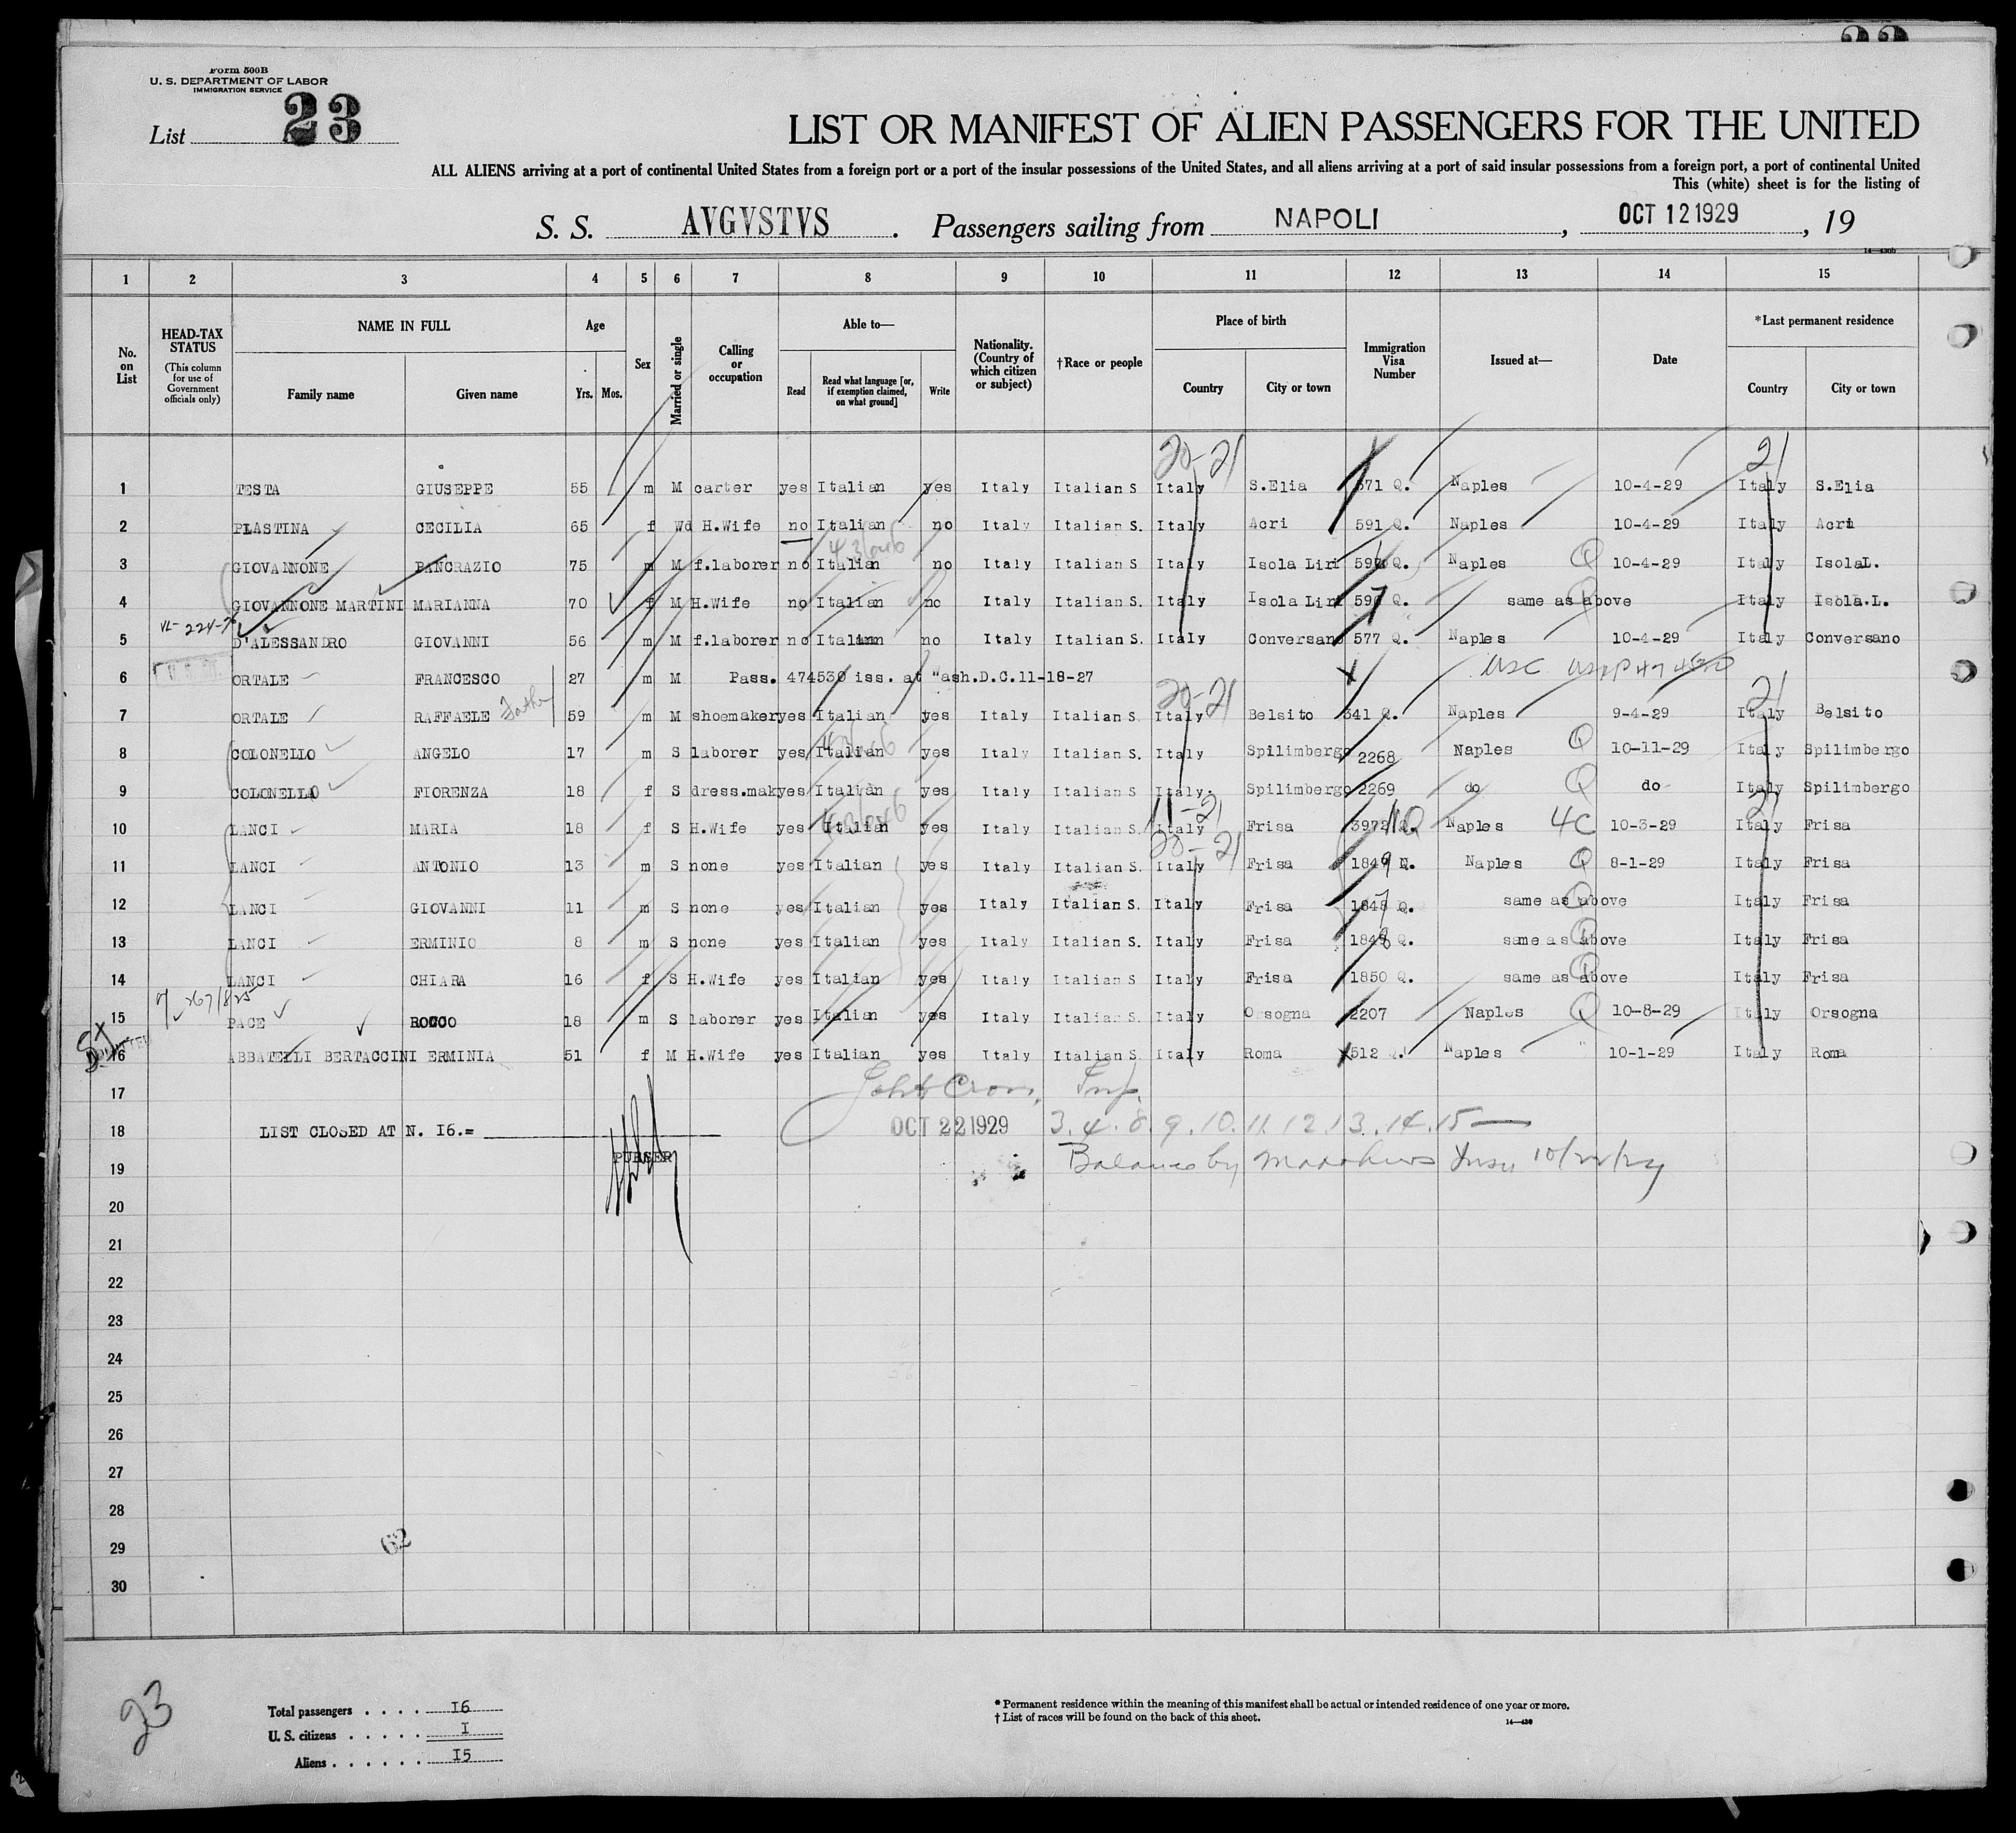 Form 500B
U. S. DEPARTMENT OF LABOR
IMMIGRATION SERVICE
List 23
LIST OR MANIFEST OF ALIEN PASSENGERS FOR THE UNITED
ALL ALIENS arriving at a port of continental United States from a foreign port or a port of the insular possessions of the United States, and all aliens arriving at a port of said insular possessions from a foreign port, a port of continental United
This (white) sheet is for the listing of
S. S. AVGVSTVS. Passengers sailing from NAPOLI, OCT 12 1929, 19
14—430b
1 2 3 4 5 6 7 8 9 10 11 12 13 14 15
No. on List
HEAD-TAX STATUS (This column for use of Government officials only)
NAME IN FULL Family name Given name
Age Yrs. Mos.
Sex
Married or single
Calling or occupation
Able to— Read Read what language [or, if exemption claimed, on what ground] Write
Nationality. (Country of which citizen or subject)
†Race or people
Place of birth Country City or town
Immigration Visa Number
Issued at—
Date
*Last permanent residence Country City or town
20-21 21
1 TESTA GIUSEPPE 55 m M carter yes Italian yes Italy Italian S Italy S.Elia 571 Q. Naples 10-4-29 Italy S.Elia
2 PLASTINA CECILIA 65 f Wd H.Wife no Italian no Italy Italian S. Italy Acri 591 Q. Naples 10-4-29 Italy Acri
3 GIOVANNONE PANCRAZIO 75 m M f.laborer no Italian no Italy Italian S Italy Isola Liri 596 Q. Naples Q 10-4-29 Italy IsolaL.
4 GIOVANNONE MARTINI MARIANNA 70 f M H.Wife no Italian no Italy Italian S Italy Isola Liri 597 Q. same as above Italy Isola.L.
5 D'ALESSANDRO GIOVANNI 56 m M f.laborer no Italian no Italy Italian S. Italy Conversano 577 Q. Naples 10-4-29 Italy Conversano
6 ORTALE FRANCESCO 27 m M Pass. 474530 iss. at Wash.D.C.11-18-27 USC
20-21 21
7 ORTALE RAFFAELE Father 59 m M shoemaker yes Italian yes Italy Italian S Italy Belsito 341 Q. Naples 9-4-29 Italy Belsito
8 COLONELLO ANGELO 17 m S laborer yes Italian yes Italy Italian S. Italy Spilimbergo 2268 Naples Q 10-11-29 Italy Spilimbergo
9 COLONELLO FIORENZA 18 f S dress.mak yes Italian yes Italy Italian S Italy. Spilimbergo 2269 do Q do Italy Spilimbergo
11-21 21
10 LANCI MARIA 18 f S H.Wife yes Italian yes Italy Italian S Italy Frisa 3972 NQ Naples 4C 10-3-29 Italy Frisa
20-21
11 LANCI ANTONIO 13 m S none yes Italian yes Italy Italian S. Italy Frisa 1849 Q. Naples Q 8-1-29 Italy Frisa
12 LANCI GIOVANNI 11 m S none yes Italian yes Italy Italian S. Italy Frisa 1847 Q. same as above Italy Frisa
13 LANCI ERMINIO 8 m S none yes Italian yes Italy Italian S. Italy Frisa 1848 Q. same as above Italy Frisa
14 LANCI CHIARA 16 f S H.Wife yes Italian yes Italy Italian S Italy Frisa 1850 Q. same as above Italy Frisa
15 PACE ROCCO 18 m S laborer yes Italian yes Italy Italian S Italy Orsogna 2207 Naples Q 10-8-29 Italy Orsogna
16 ABBATELLI BERTACCINI ERMINIA 51 f M H.Wife yes Italian yes Italy Italian S. Italy Roma 512 Q. Naples 10-1-29 Italy Roma
17
18 LIST CLOSED AT N. I6.= OCT 22 1929 3.4.8.9.10.11.12.13.14.15—
PURSER
19 Balance by Matthews Insp 10/22/29
20
21
22
23
24
25
26
27
28
29
62
30
23
Total passengers . . . . I6
U. S. citizens . . . . . I
Aliens . . . . . . I5
* Permanent residence within the meaning of this manifest shall be actual or intended residence of one year or more.
† List of races will be found on the back of this sheet.
14—430